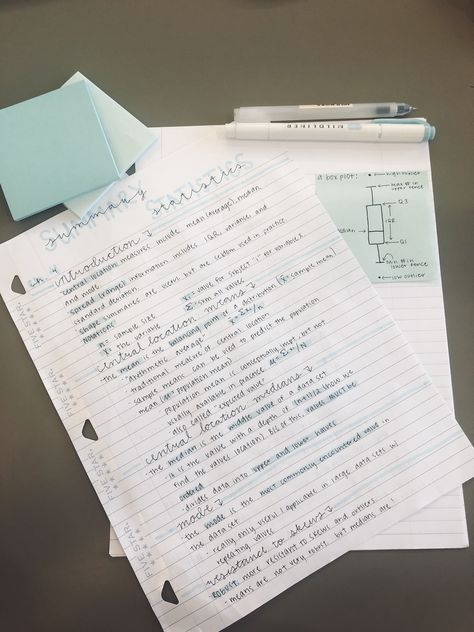 summary statistics
SUMMARY STATISTICS
ch. 4
introduction
central location measures include mean (average), median
and mode
spread (range) information includes IQR, variance, and
standard deviation
shape summaries are useful but are seldom used in practice
notation:
n = sample size
xᵢ = value for subject "i" for variable x
x = the variable
Σ = sum all values
central location means
the mean is the balancing point of a distribution (x̄ = sample mean)
"arithmetic average" x̄ = Σxᵢ/n
traditional measure of central location
sample means can be used to predict the population
mean (μ = population mean)
population mean is conceptually imp. but not
usually available in practice μ = Σxᵢ/N
also called "expected value"
central location medians
the median is the middle value of a data set
it is the value with a depth of (n+1)/2 (how we
find the values location) b/c of this, values must be
ordered
divides data into upper and lower halves
mode
the mode is the most commonly encountered value in
the data set
really only useful/applicable in large data sets w/
repeating values
resistance to skews
robust: more resistant to skews and outliers
means are not very robust, but medians are!
a boxplot:
high outlier
max # in
upper fence
Q3
IQR
median
Q1
min # in
lower fence
low outlier
MILDLINER
FIVE STAR.
FIVE STAR.
FIVE STAR.
FIVE STAR.